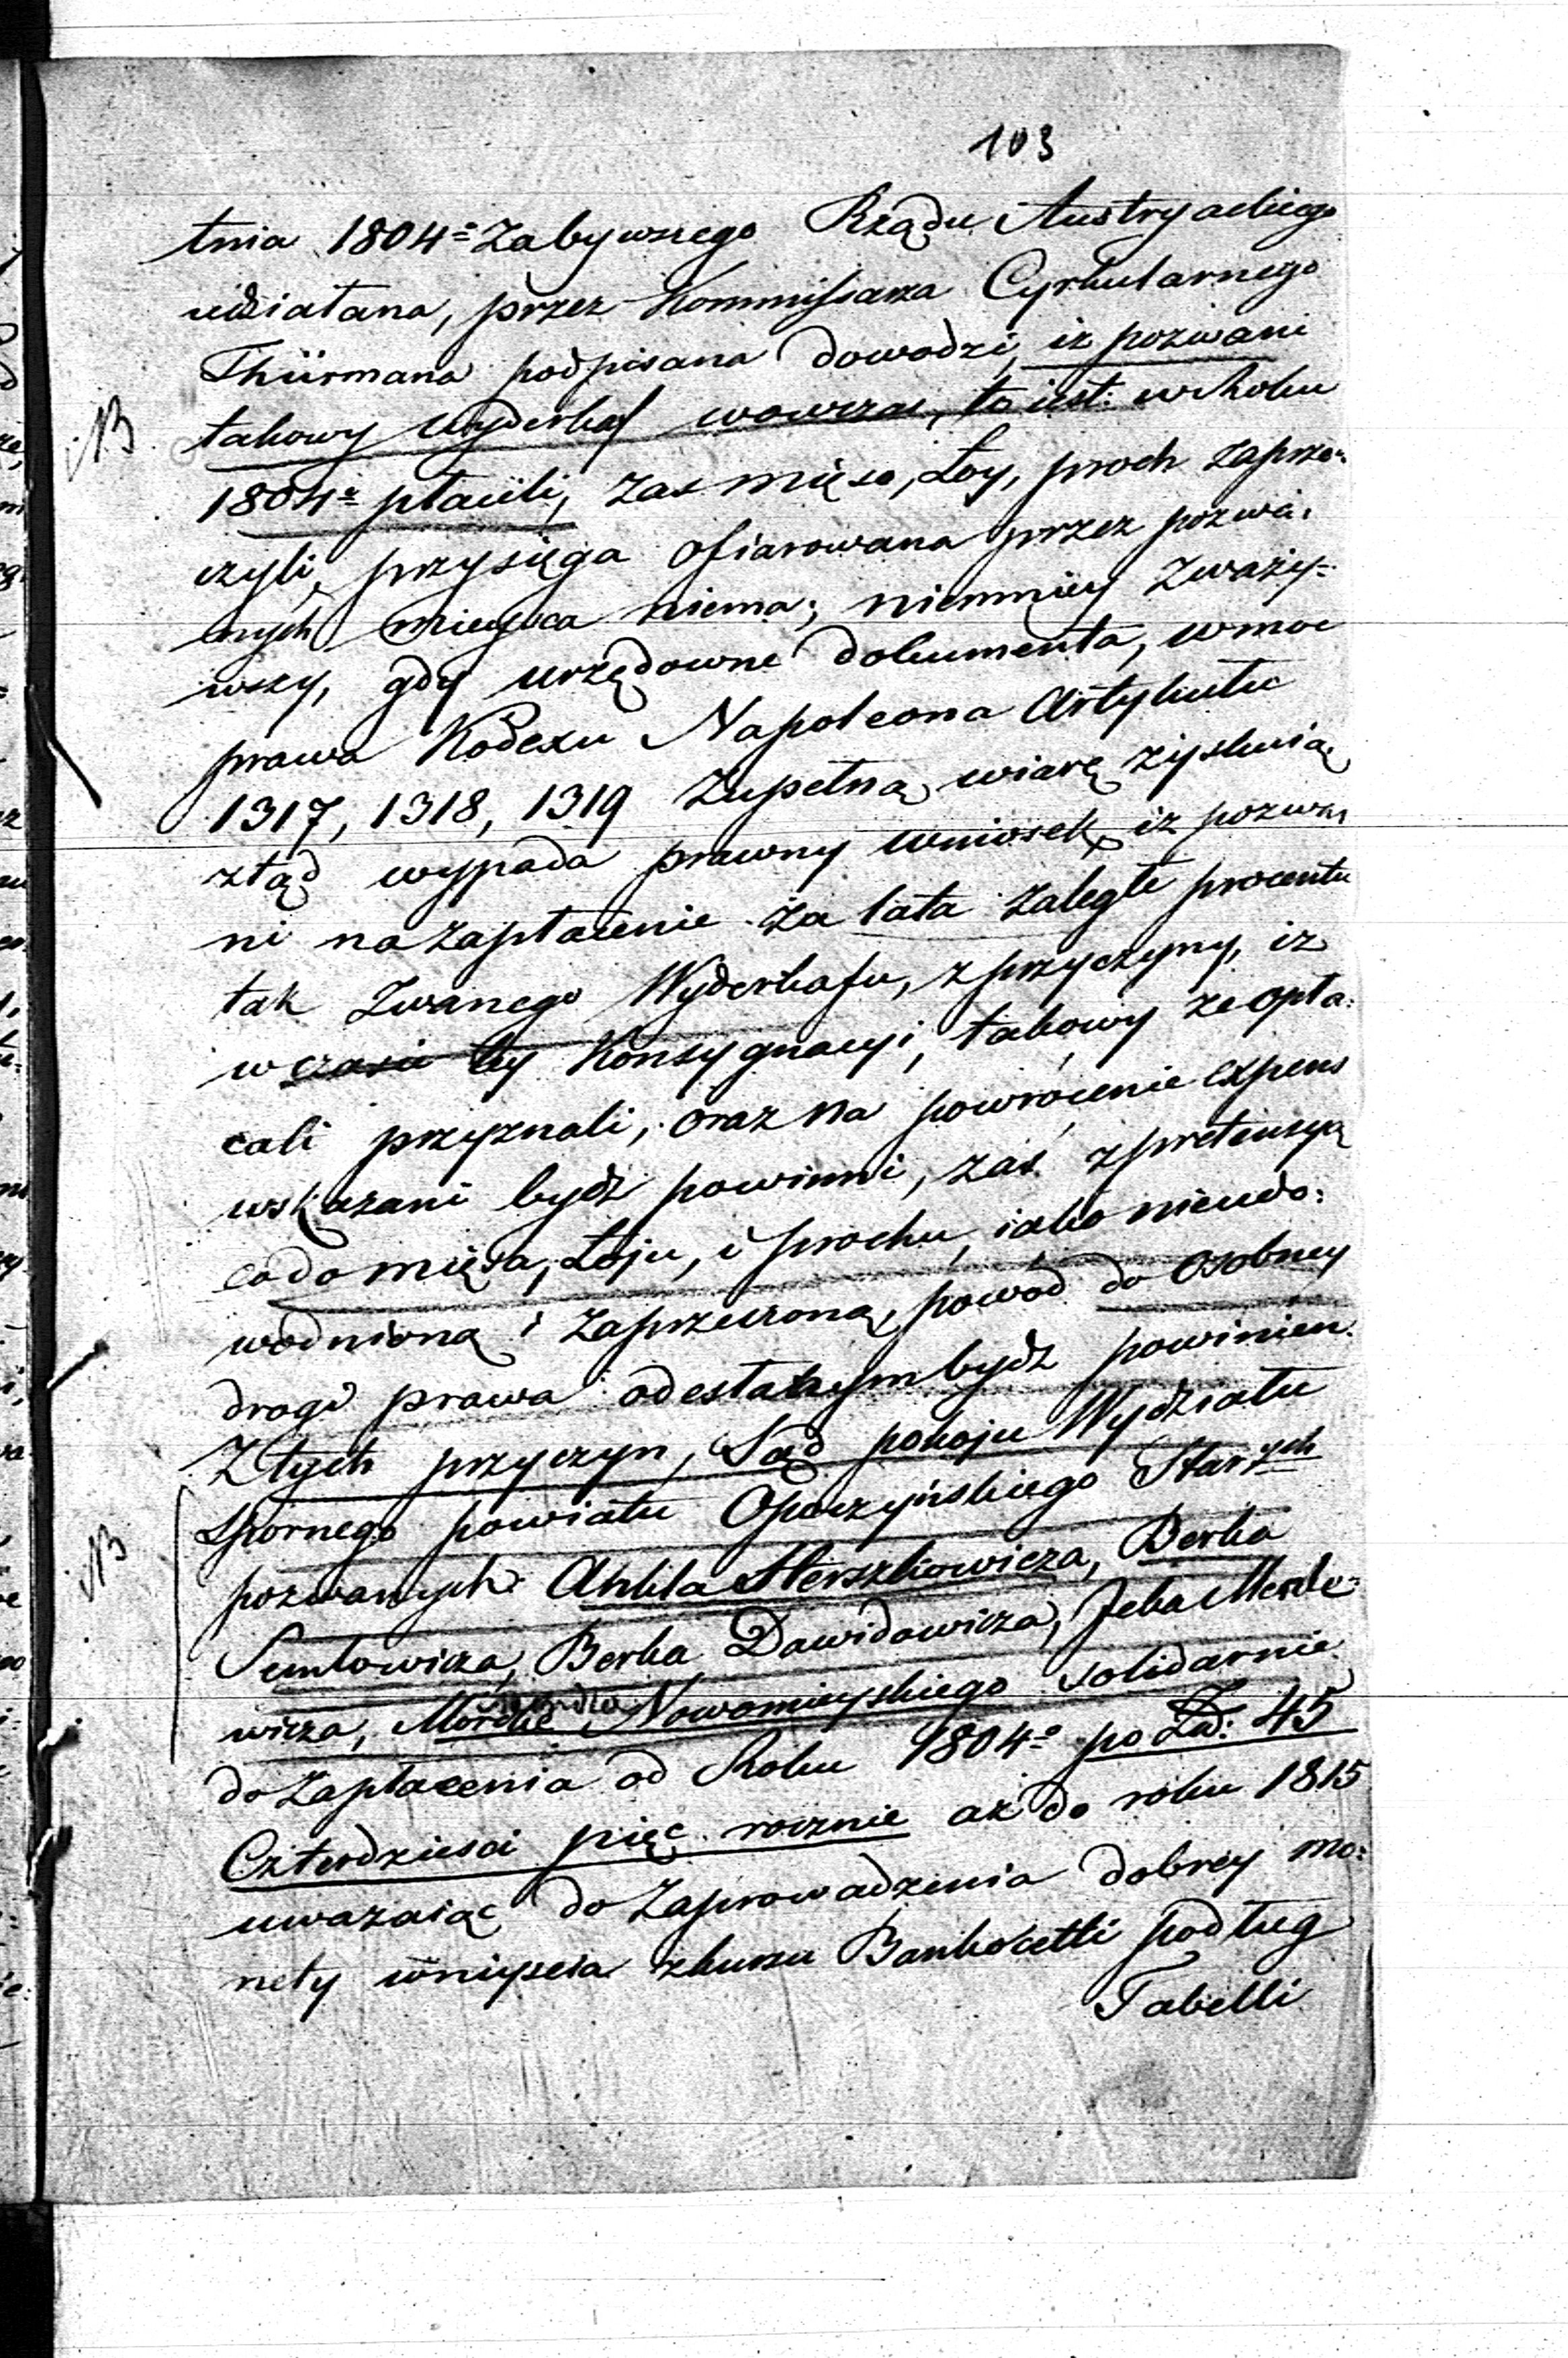 103
tnia 1804º Zabywszego Rządu Austryackiego
udziałana, przez Kommissarza Cyrkularnego
Thürmana podpisana dowodzi, iż pozwani
NB
takowy Wyderkaf wowczas, to iest: w Roku
1804º płacili, zas mięso, Łoy, proch zaprze=
czyli, przysięga ofiarowana przez pozwa:
nych mieysca niema; niemniey Zważy=
wszy, gdy urzędowne dokumenta, w moc
prawa Kodexu Napoleona Artykułu
1317, 1318, 1319 Zupełną wiarę zyskuią
ztąd wypada prawny wniosek, iż pozwa
ni na zapłacenie za lata zaległe procentu
tak Zwanego Wyderkafu, z przyczyny, iż
w czasie tey Konsygnacyi, takowy ze opła:
cali przyznali, oraz na powrócenie expens
wskazani bydź powinni, zaś z pretensyą
co do mięsa, Łoju, i prochu, iako nieudo:
wodnioną i zaprzeczoną, powód do osobney
drogi prawa odesłanym bydź powinien.
Z tych przyczyn, Sąd pokoju Wydziału
Spornego powiatu Opoczyńskiego Starych
NB
pozwanych Ankla Herszkowicza, Berka
Semlowicza, Berka Dawidowicza, Jcka Mende=
wicza, Mordke Nowomieyskiego solidarnie
do zapłacenia od Roku 1804º po Zł: 45
Czterdzieści pięć rocznie aż do roku 1815
uważaiąc do Zaprowadzenia dobrey mo:
nety wniyscia z kursu Bankocetli podług
Tabelli